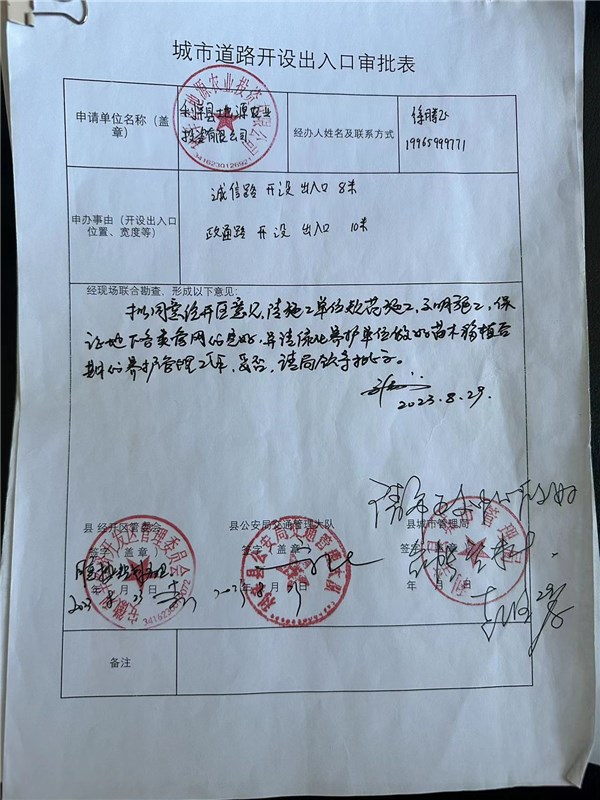 城市道路开设出入口审批表
申请单位名称（盖章）
利辛县地源农业
投资有限公司
3416230126921
经办人姓名及联系方式
徐腾飞
19965999771
申办事由（开设出入口位置、宽度等）
诚信路 开设 出入口 8米
政通路 开设 出入口 10米
经现场联合勘查，形成以下意见：
拟同意经开区意见，请施工单位规范施工，文明施工，保
证地下各类管网的完好，并请绿化养护单位做好苗木移植后
期的养护管理工作，妥否，请局领导批示。
2023.8.29.
县经开区管委会
签字（盖章）
年 月 日
县公安局交通管理大队
签字（盖章）
年 月 日
县城市管理局
签字（盖章）
年 月 日
备注